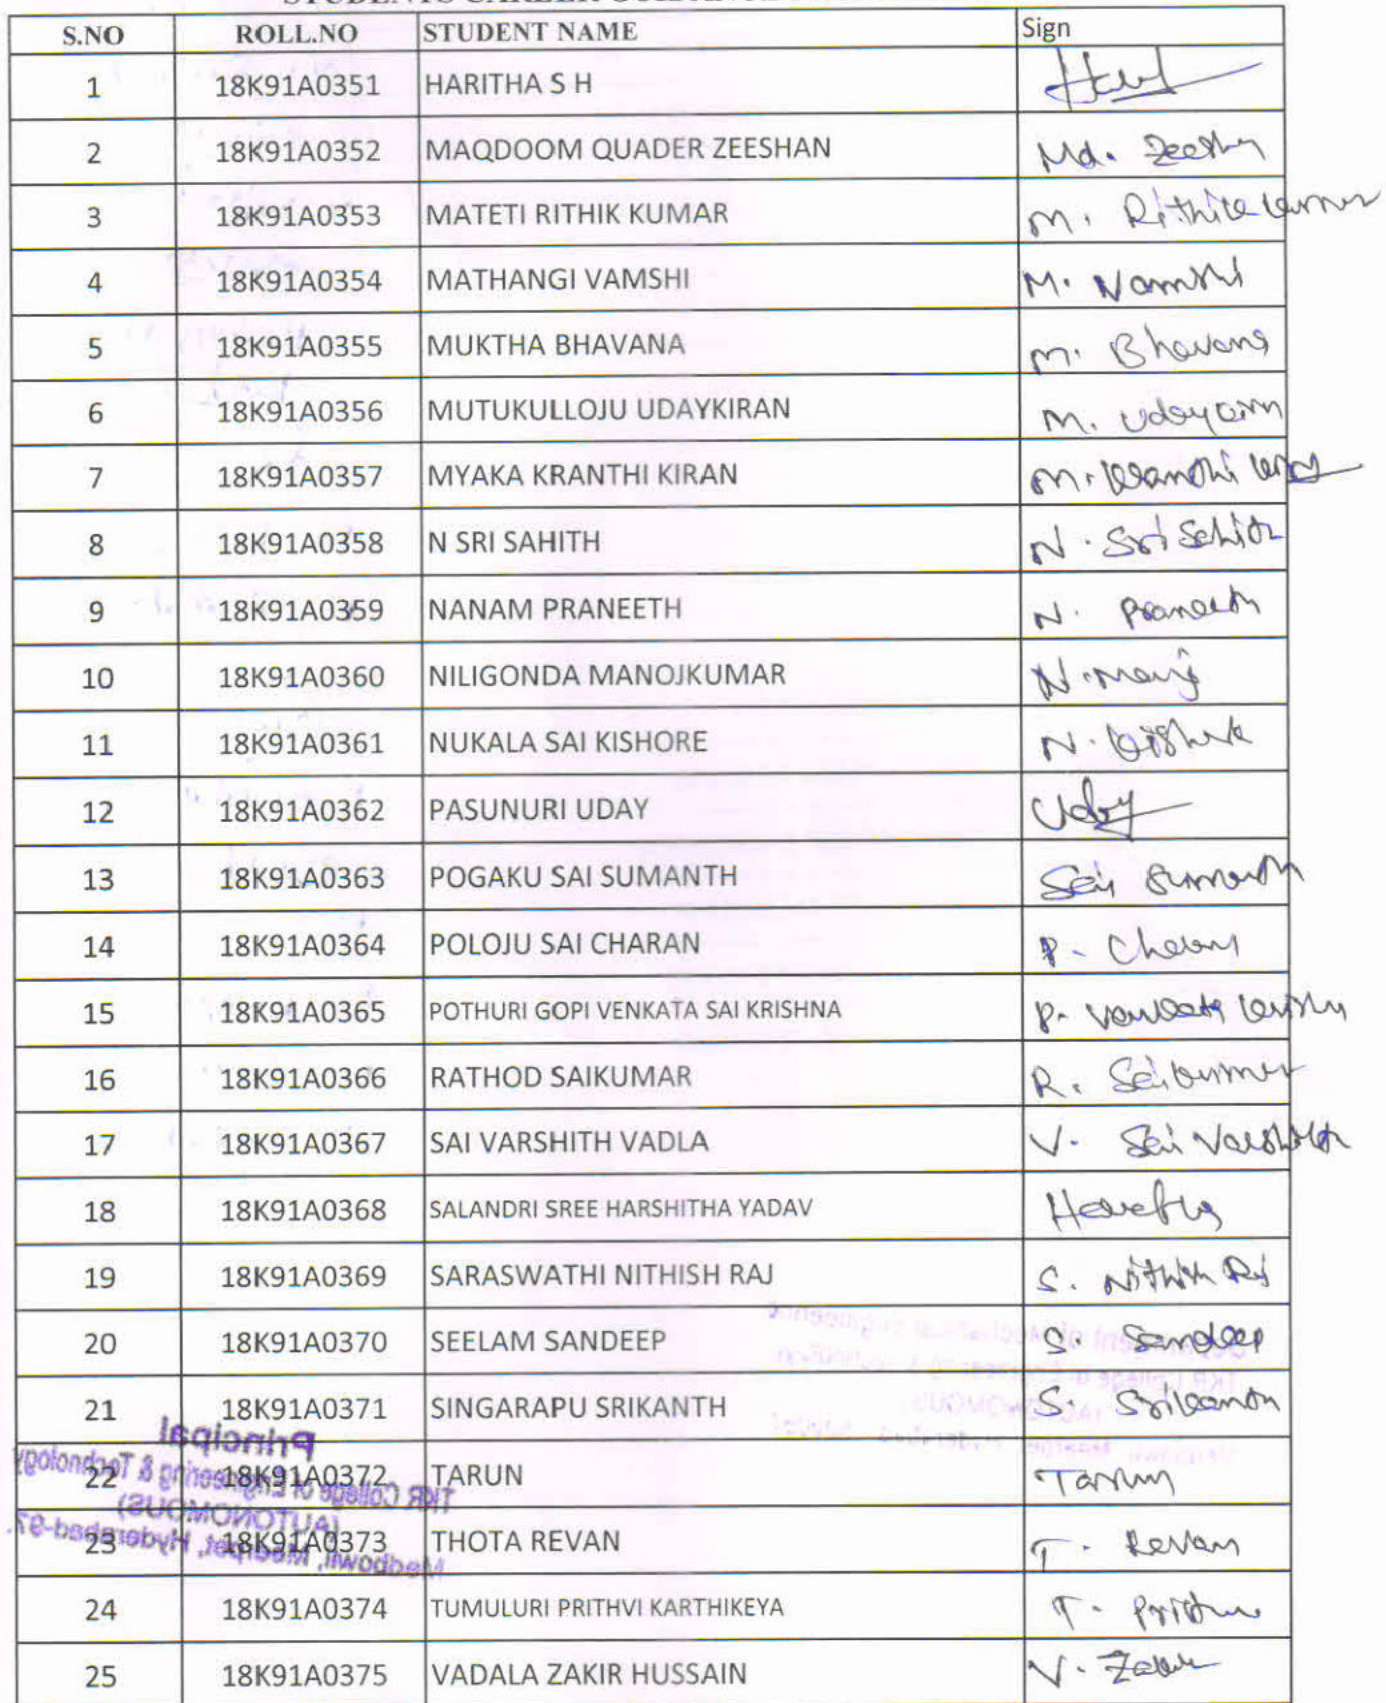 STUDENTS CAREER GUIDANCE
S.NO ROLL.NO STUDENT NAME Sign
1 18K91A0351 HARITHA S H
2 18K91A0352 MAQDOOM QUADER ZEESHAN Md. Zeeshan
3 18K91A0353 MATETI RITHIK KUMAR M. Rithik kumar
4 18K91A0354 MATHANGI VAMSHI M. Vamshi
5 18K91A0355 MUKTHA BHAVANA M. Bhavana
6 18K91A0356 MUTUKULLOJU UDAYKIRAN M. Udaykiran
7 18K91A0357 MYAKA KRANTHI KIRAN M. Kranthi kiran
8 18K91A0358 N SRI SAHITH N. Sri Sahith
9 18K91A0359 NANAM PRANEETH N. Praneeth
10 18K91A0360 NILIGONDA MANOJKUMAR N. Manoj
11 18K91A0361 NUKALA SAI KISHORE N. Kishore
12 18K91A0362 PASUNURI UDAY Uday
13 18K91A0363 POGAKU SAI SUMANTH Sai Sumanth
14 18K91A0364 POLOJU SAI CHARAN P. Charan
15 18K91A0365 POTHURI GOPI VENKATA SAI KRISHNA P. Venkata krishna
16 18K91A0366 RATHOD SAIKUMAR R. Saikumar
17 18K91A0367 SAI VARSHITH VADLA V. Sai Varshith
18 18K91A0368 SALANDRI SREE HARSHITHA YADAV
19 18K91A0369 SARASWATHI NITHISH RAJ S. Nithish Raj
20 18K91A0370 SEELAM SANDEEP S. Sandeep
21 18K91A0371 SINGARAPU SRIKANTH S. Srikanth
22 18K91A0372 TARUN Tarun
23 18K91A0373 THOTA REVAN T. Revan
24 18K91A0374 TUMULURI PRITHVI KARTHIKEYA T. Prithvi
25 18K91A0375 VADALA ZAKIR HUSSAIN V. Zakir
Principal
TKR College of Engineering & Technology
(AUTONOMOUS)
Medbowli, Meerpet, Hyderabad-97.
Department of Mechanical Engineering
TKR College of Engineering & Technology
(AUTONOMOUS)